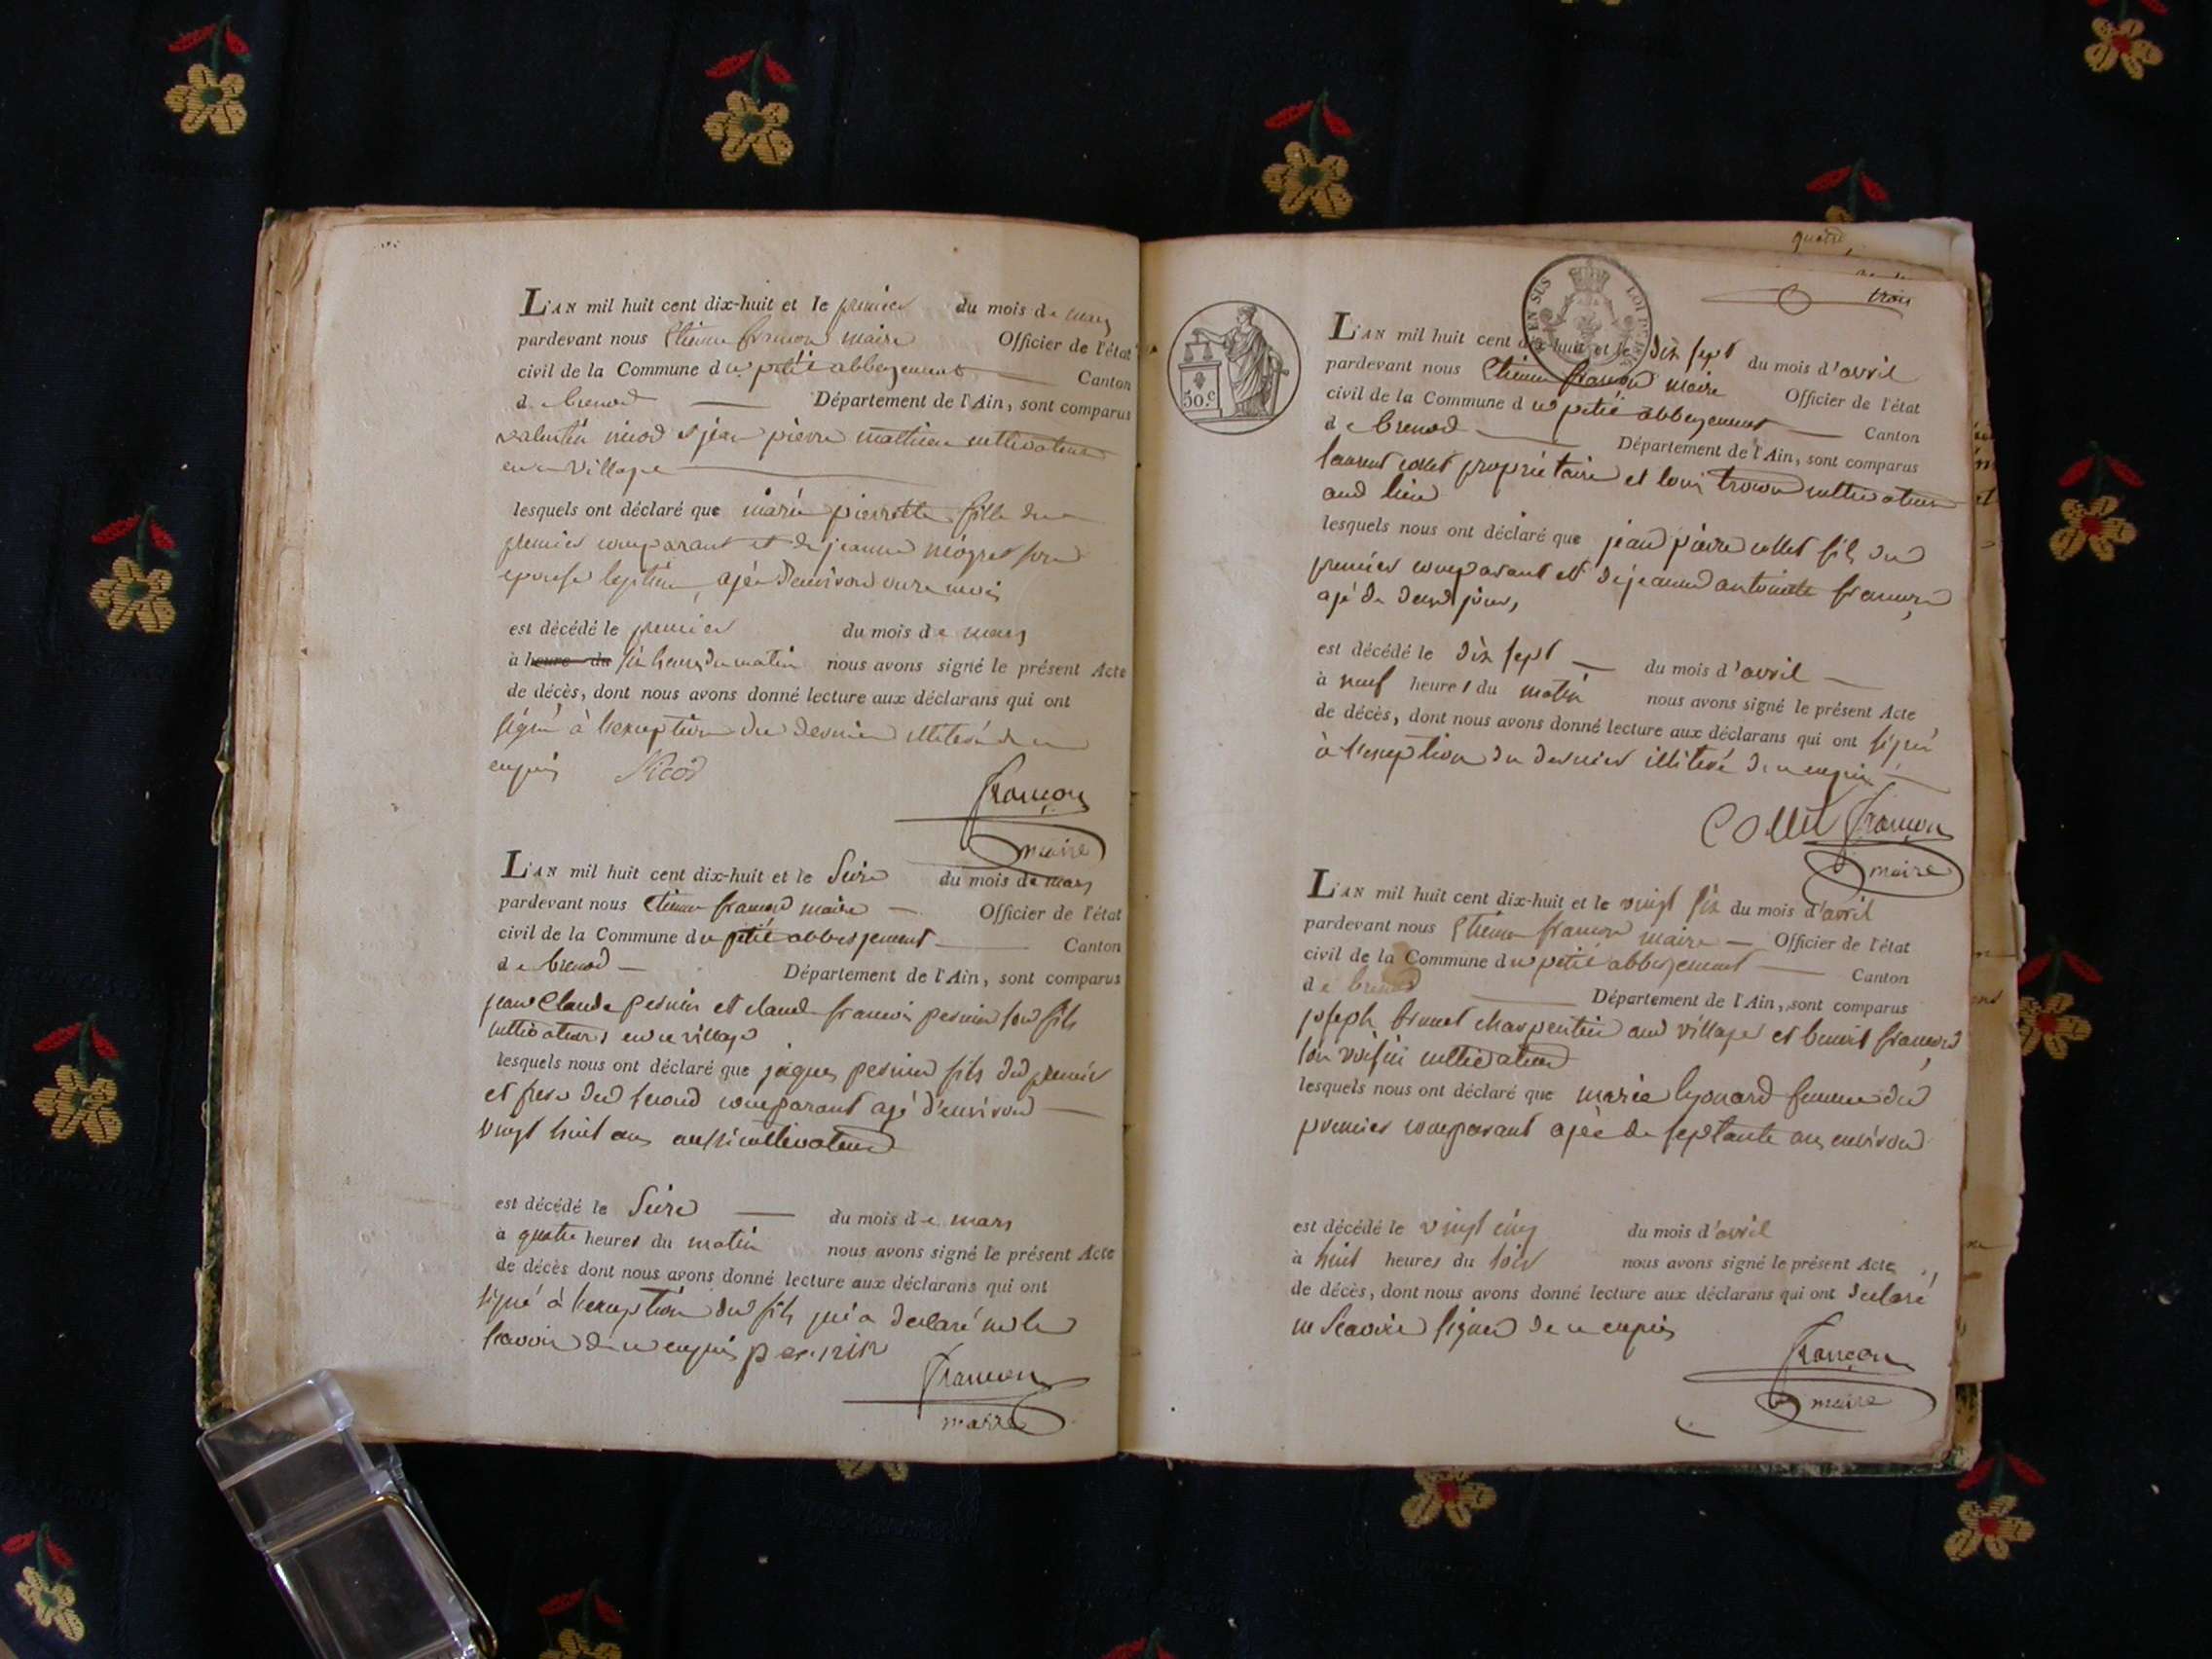 L'AN mil huit cent dix-huit et le premier du mois de mars
pardevant nous Etienne françon maire Officier de l'état
civil de la Commune du petit abbergement Canton
de brenod Département de l'Ain, sont comparus
valentin nicod et jean pierre mathieu cultivateurs
en ce village
lesquels ont déclaré que marie pierrette fille du
premier comparant et de jeanne son
epouse legitime, agée d'environ onze mois
est décédé le premier du mois de mars
à heure du six heures du matin nous avons signé le présent Acte
de décès, dont nous avons donné lecture aux déclarans qui ont
signé à l'exception du dernier illiteré de ce
enquis Nicod
françon
maire
L'AN mil huit cent dix-huit et le Seize du mois de mars
pardevant nous Etienne françon maire Officier de l'état
civil de la Commune du petit abbergement Canton
de brenod Département de l'Ain, sont comparus
jean Claude pernin et claude francois pernin son fils
cultivateurs en ce village
lesquels nous ont déclaré que jaques pernin fils du premier
et frere du second comparant agé d'environ
vingt huit ans aussi cultivateur
est décédé le Seize du mois de mars
à quatre heures du matin nous avons signé le présent Acte
de décès dont nous avons donné lecture aux déclarans qui ont
signé à l'exception du fils qui a declaré ne le
scavoir de ce enquis pernin
françon
maire
trois
EN SUS
LOI DE
50.c
L'AN mil huit cent dix-huit et le dix sept du mois d'avril
pardevant nous Etienne françon maire Officier de l'état
civil de la Commune du petit abbergement Canton
de brenod Département de l'Ain, sont comparus
laurent collet propriétaire et louis cultivateur
aud lieu
lesquels nous ont déclaré que jean pierre collet fils du
premier comparant et de jeanne antoinette françon
agé de deux jours,
est décédé le dix sept du mois d'avril
à neuf heures du matin nous avons signé le présent Acte
de décès, dont nous avons donné lecture aux déclarans qui ont signé
à l'exception du dernier illiteré de ce enquis
COllet françon
maire
L'AN mil huit cent dix-huit et le vingt six du mois d'avril
pardevant nous Etienne françon maire Officier de l'état
civil de la Commune du petit abbergement Canton
de brenod Département de l'Ain, sont comparus
joseph brunet charpentier aud village et benoit françon
son voisin cultivateur
lesquels nous ont déclaré que marie lyonard femme du
premier comparant agée de septante ans environ
est décédé le vingt cinq du mois d'avril
à huit heures du soir nous avons signé le présent Acte
de décès, dont nous avons donné lecture aux déclarans qui ont declaré
ne Scavoire signer de ce enquis
françon
maire